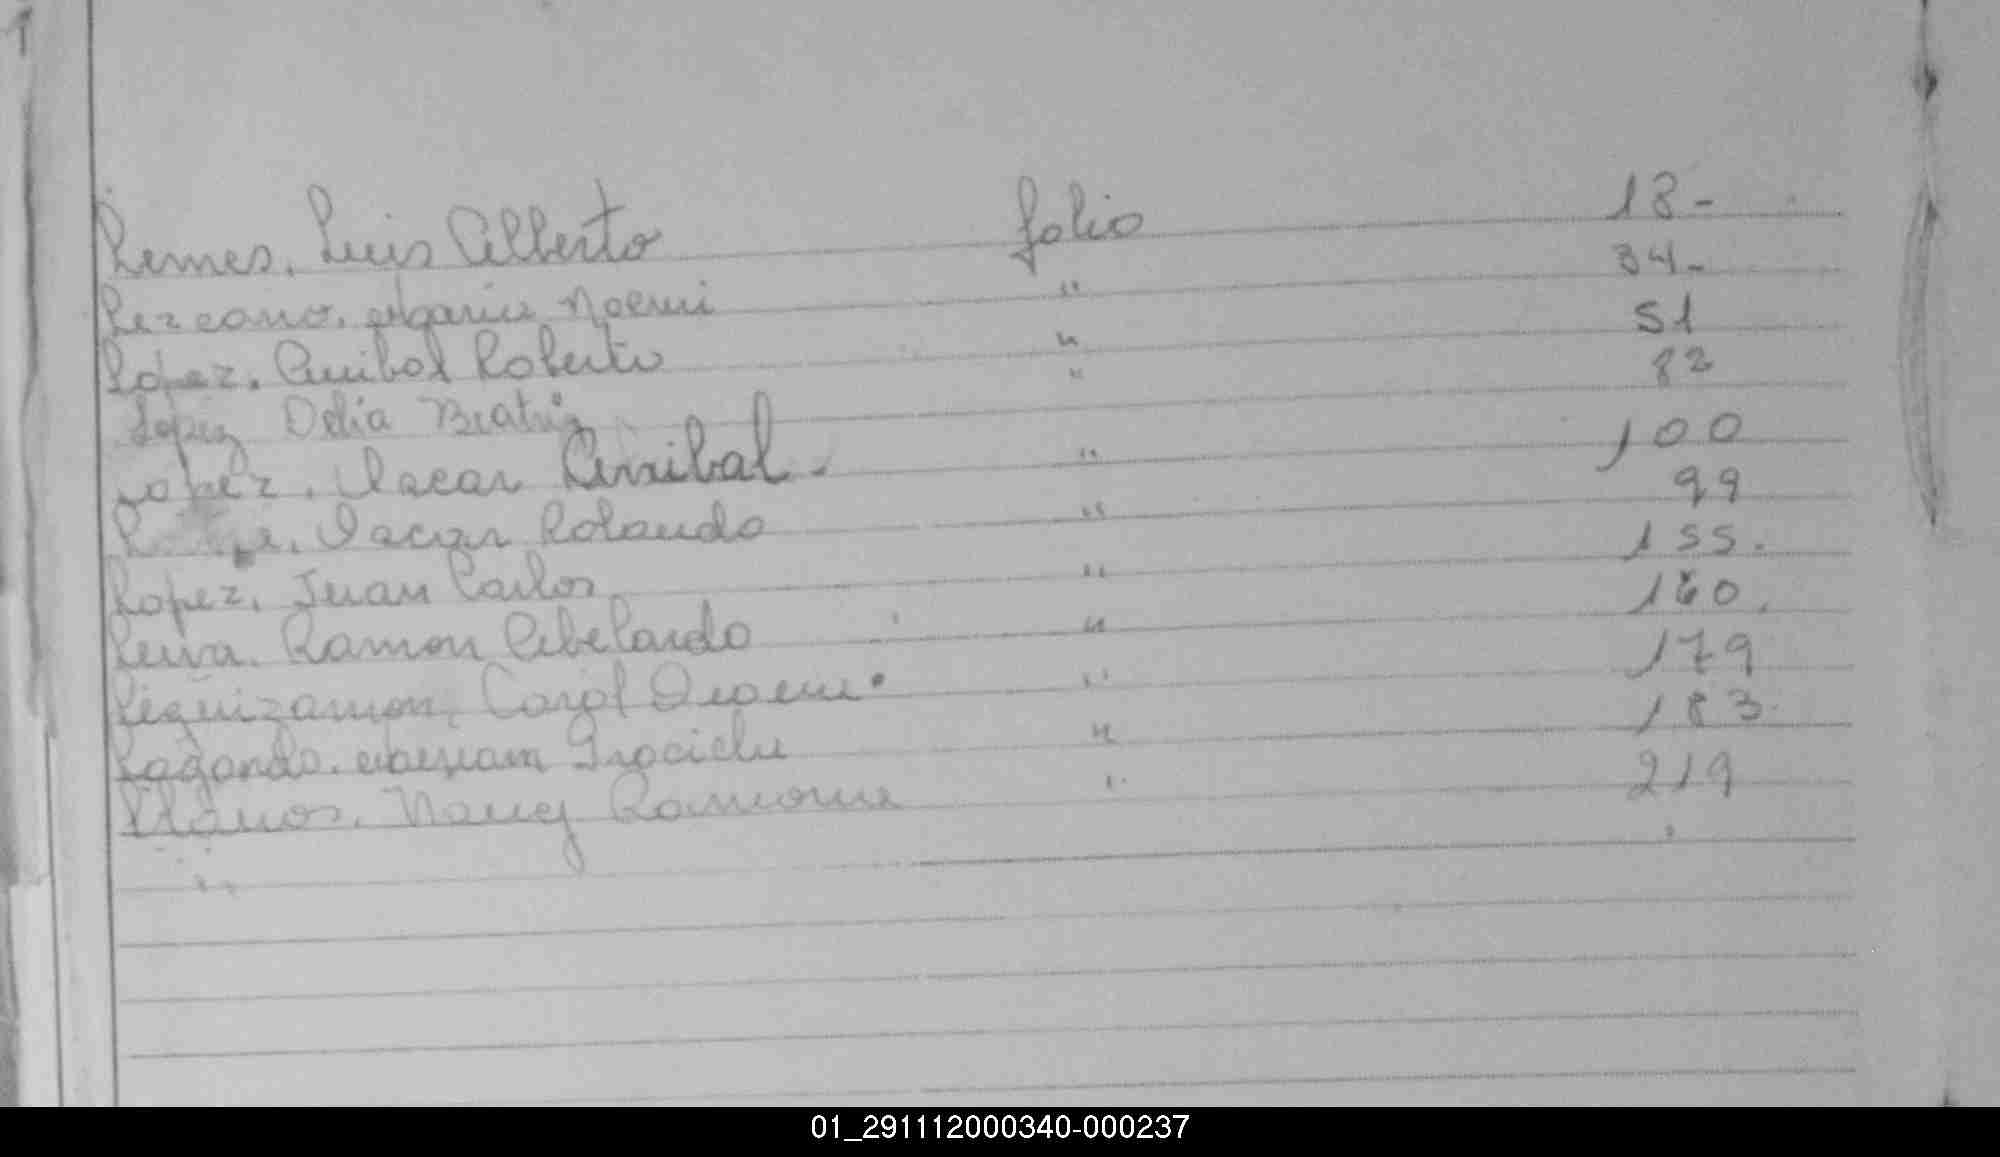 Lemes, Luis Alberto folio 18-
Lezcano, Maria Noemi " 34-
Lopez, Anibal Roberto " 51
Lopez Delia Beatriz " 82
Lopez, Oscar Anibal - " 100
Oscar Rolando " 99
Lopez, Juan Carlos " 155.
Leiva, Ramon Abelardo " 160.
Leguizamon, Carol Noemi " 179
Graciela " 183
Llanos, Nancy Ramona " 219
01_291112000340-000237